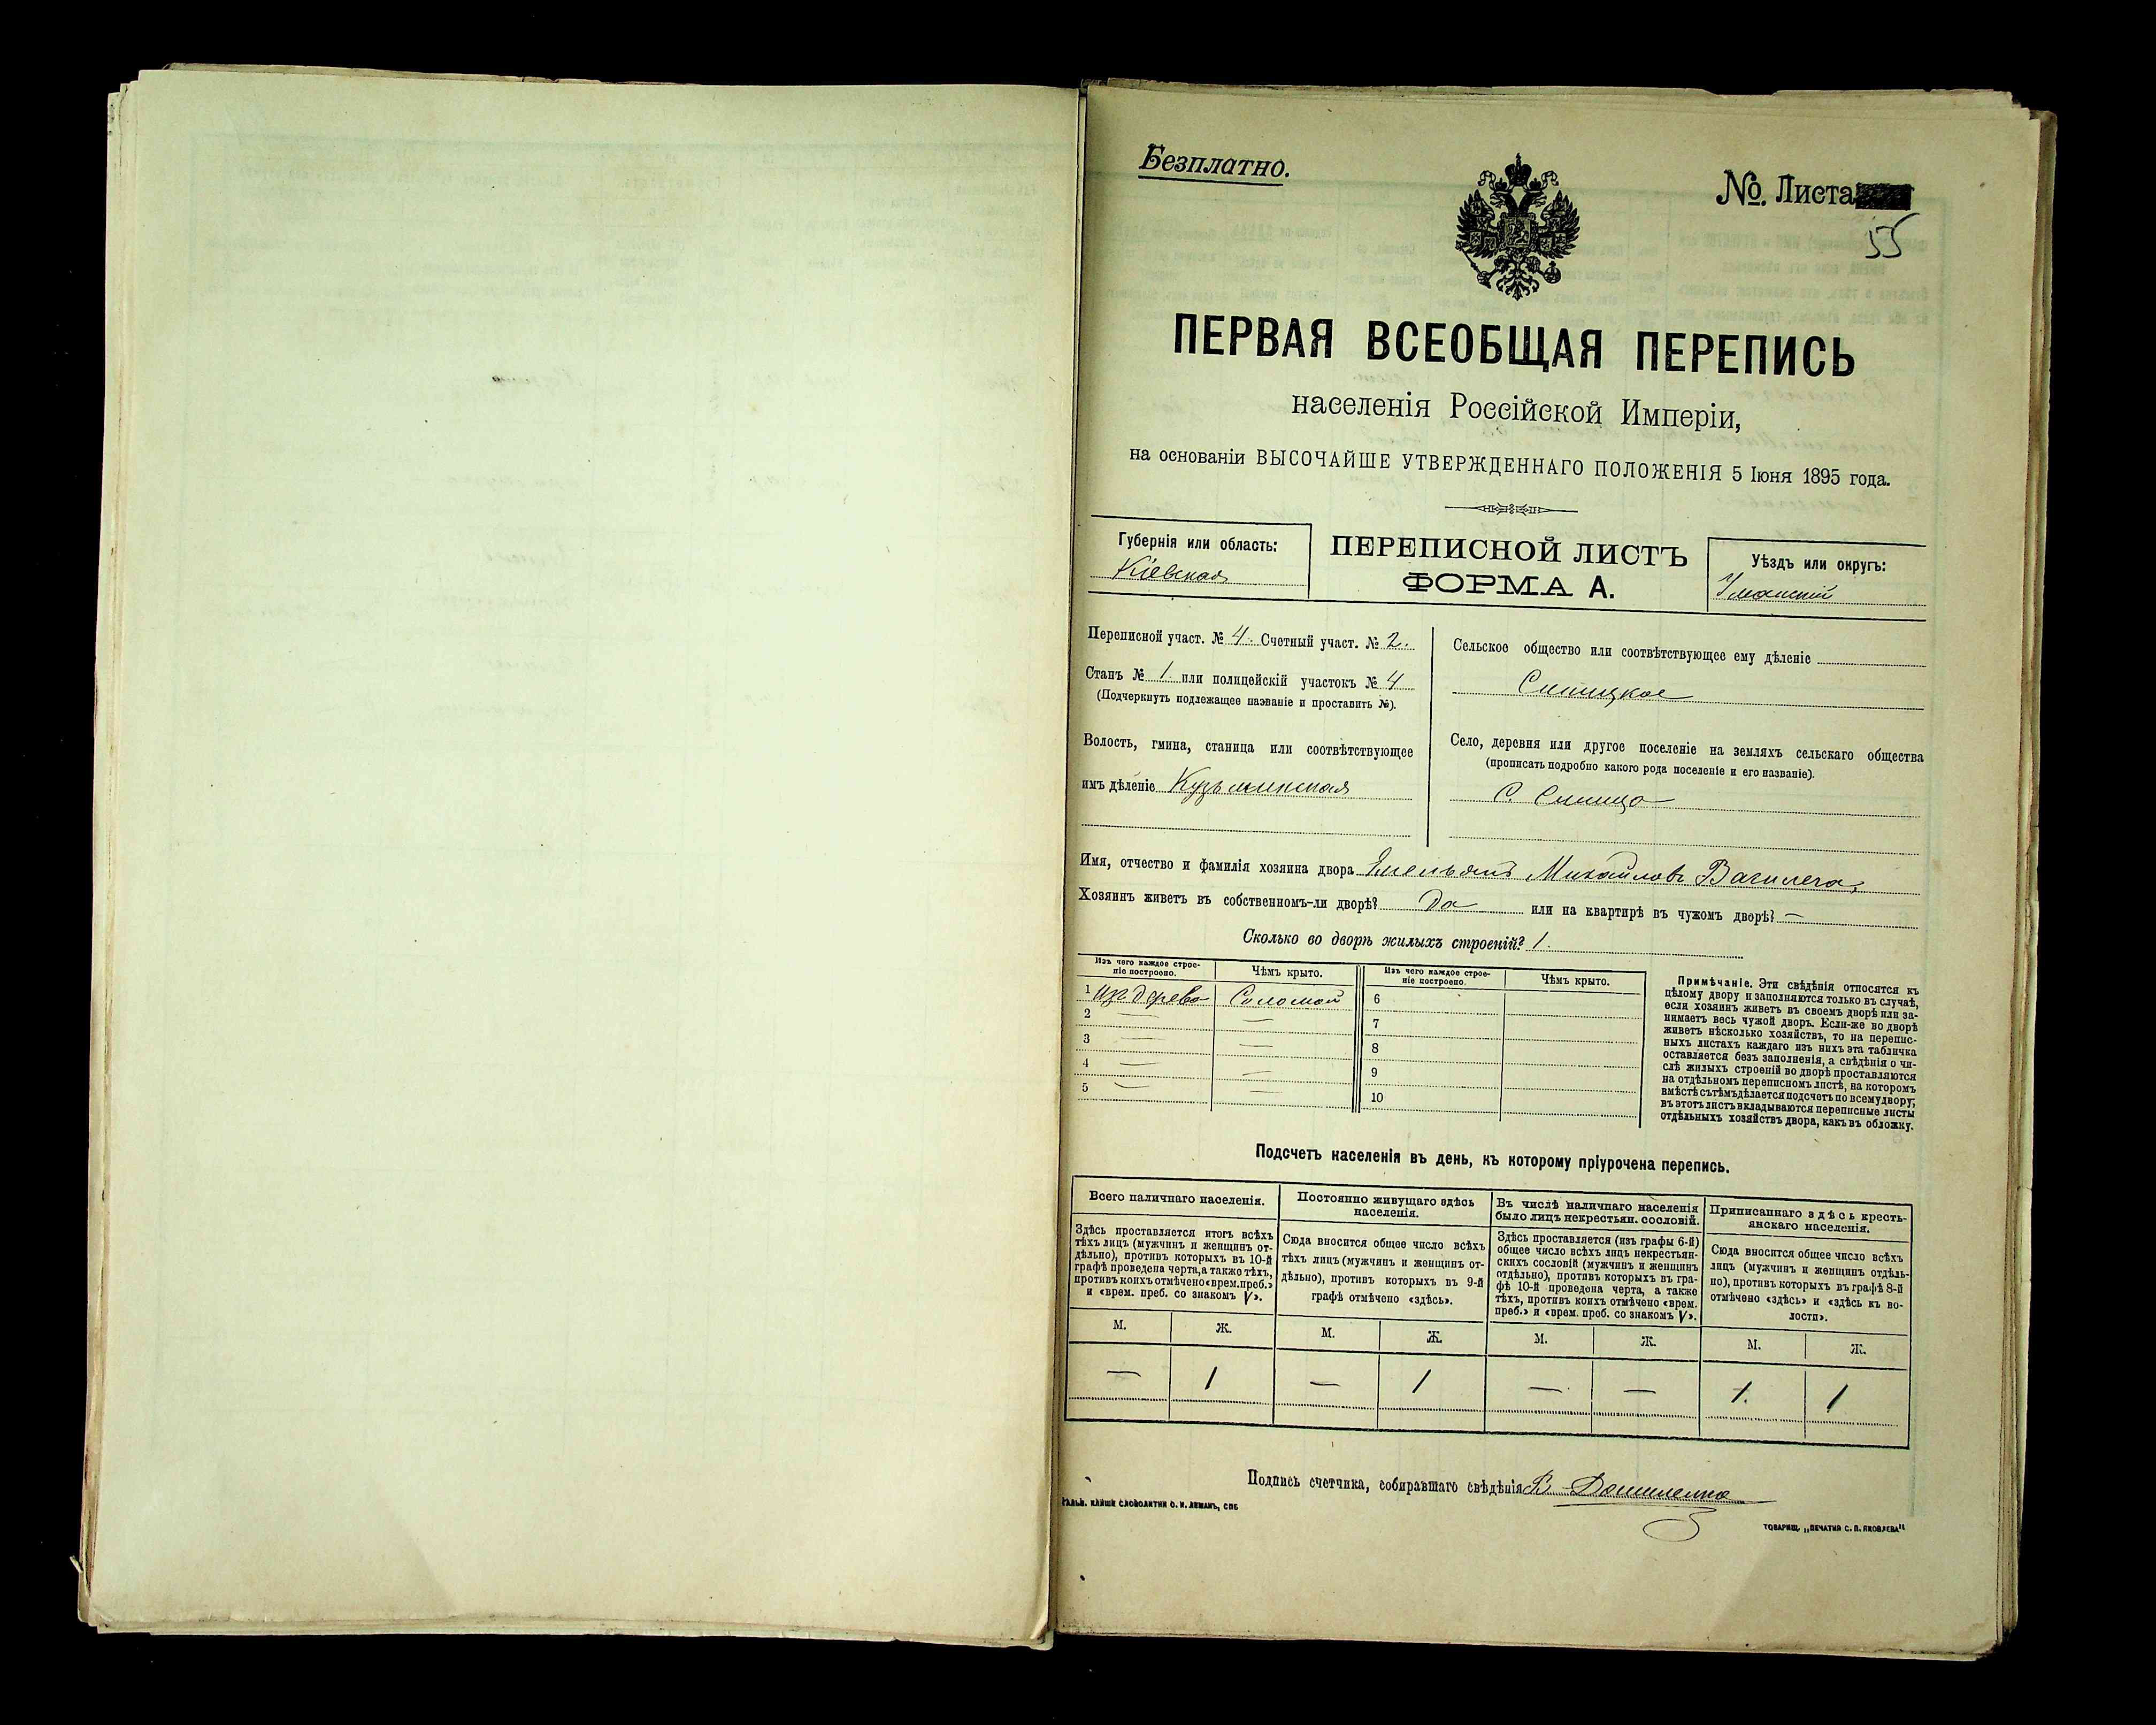 Безплатно.
№. Листа
55
ПЕРВАЯ ВСЕОБЩАЯ ПЕРЕПИСЬ
населенія Россійской Имперіи,
на основаніи ВЫСОЧАЙШЕ УТВЕРЖДЕННАГО ПОЛОЖЕНІЯ 5 Іюня 1895 года.
Губернія или область:
Кіевская
ПЕРЕПИСНОЙ ЛИСТЪ
ФОРМА А.
Уѣздъ или округъ:
Уманскій
Переписной участ. № 4. Счетный участ. № 2.
Станъ № 1 или полицейскій участокъ № 4
(Подчеркнуть подлежащее названіе и проставить №).
Волость, гмина, станица или соотвѣтствующее
имъ дѣленіе Кузьминская
Сельское общество или соотвѣтствующее ему дѣленіе
Синицкое
Село, деревня или другое поселеніе на земляхъ сельскаго общества
(прописать подробно какого рода поселеніе и его названіе).
С. Синица
Имя, отчество и фамилія хозяина двора Емельянъ Михайловъ
Хозяинъ живетъ въ собственномъ-ли дворѣ? Да или на квартирѣ въ чужомъ дворѣ? —
Сколько во дворѣ жилыхъ строеній? 1.
Изъ чего каждое строе-
ніе построено.
Чѣмъ крыто.
Изъ чего каждое строе-
ніе построено.
Чѣмъ крыто.
1 изъ дерева Соломой 6
2 — — 7
3 — — 8
4 — — 9
5 — — 10
Примѣчаніе. Эти свѣдѣнія относятся къ
цѣлому двору и заполняются только въ случаѣ,
если хозяинъ живетъ въ своемъ дворѣ или за-
нимаетъ весь чужой дворъ. Если-же во дворѣ
живетъ нѣсколько хозяйствъ, то на перепис-
ныхъ листахъ каждаго изъ нихъ эта табличка
оставляется безъ заполненія, а свѣдѣнія о чи-
слѣ жилыхъ строеній во дворѣ проставляются
на отдѣльномъ переписномъ листѣ, на которомъ
вмѣстѣ съ тѣмъ дѣлается подсчетъ по всему двору;
въ этотъ листъ вкладываются переписные листы
отдѣльныхъ хозяйствъ двора, какъ въ обложку.
Подсчетъ населенія въ день, къ которому пріурочена перепись.
Всего наличнаго населенія.
Здѣсь проставляется итогъ всѣхъ
тѣхъ лицъ (мужчинъ и женщинъ от-
дѣльно), противъ которыхъ въ 10-й
графѣ проведена черта, а также тѣхъ,
противъ коихъ отмѣчено «врем. преб.»
и «врем. преб. со знакомъ V».
Постоянно живущаго здѣсь
населенія.
Сюда вносится общее число всѣхъ
тѣхъ лицъ (мужчинъ и женщинъ от-
дѣльно), противъ которыхъ въ 9-й
графѣ отмѣчено «здѣсь».
Въ числѣ наличнаго населенія
было лицъ некрестьян. сословій.
Здѣсь проставляется (изъ графы 6-й)
общее число всѣхъ лицъ некрестьян-
скихъ сословій (мужчинъ и женщинъ
отдѣльно), противъ которыхъ въ гра-
фѣ 10-й проведена черта, а также
тѣхъ, противъ коихъ отмѣчено «врем.
преб.» и «врем. преб. со знакомъ V».
Приписаннаго здѣсь кресть-
янскаго населенія.
Сюда вносится общее число всѣхъ
лицъ (мужчинъ и женщинъ отдѣль-
но), противъ которыхъ въ графѣ 8-й
отмѣчено «здѣсь» и «здѣсь къ во-
лости».
М. Ж. М. Ж. М. Ж. М. Ж.
— 1 — 1 — — 1. 1
Подпись счетчика, собиравшаго свѣдѣнія В
ТОВАРИЩ. „ПЕЧАТНЯ С. П. ЯКОВЛЕВА"